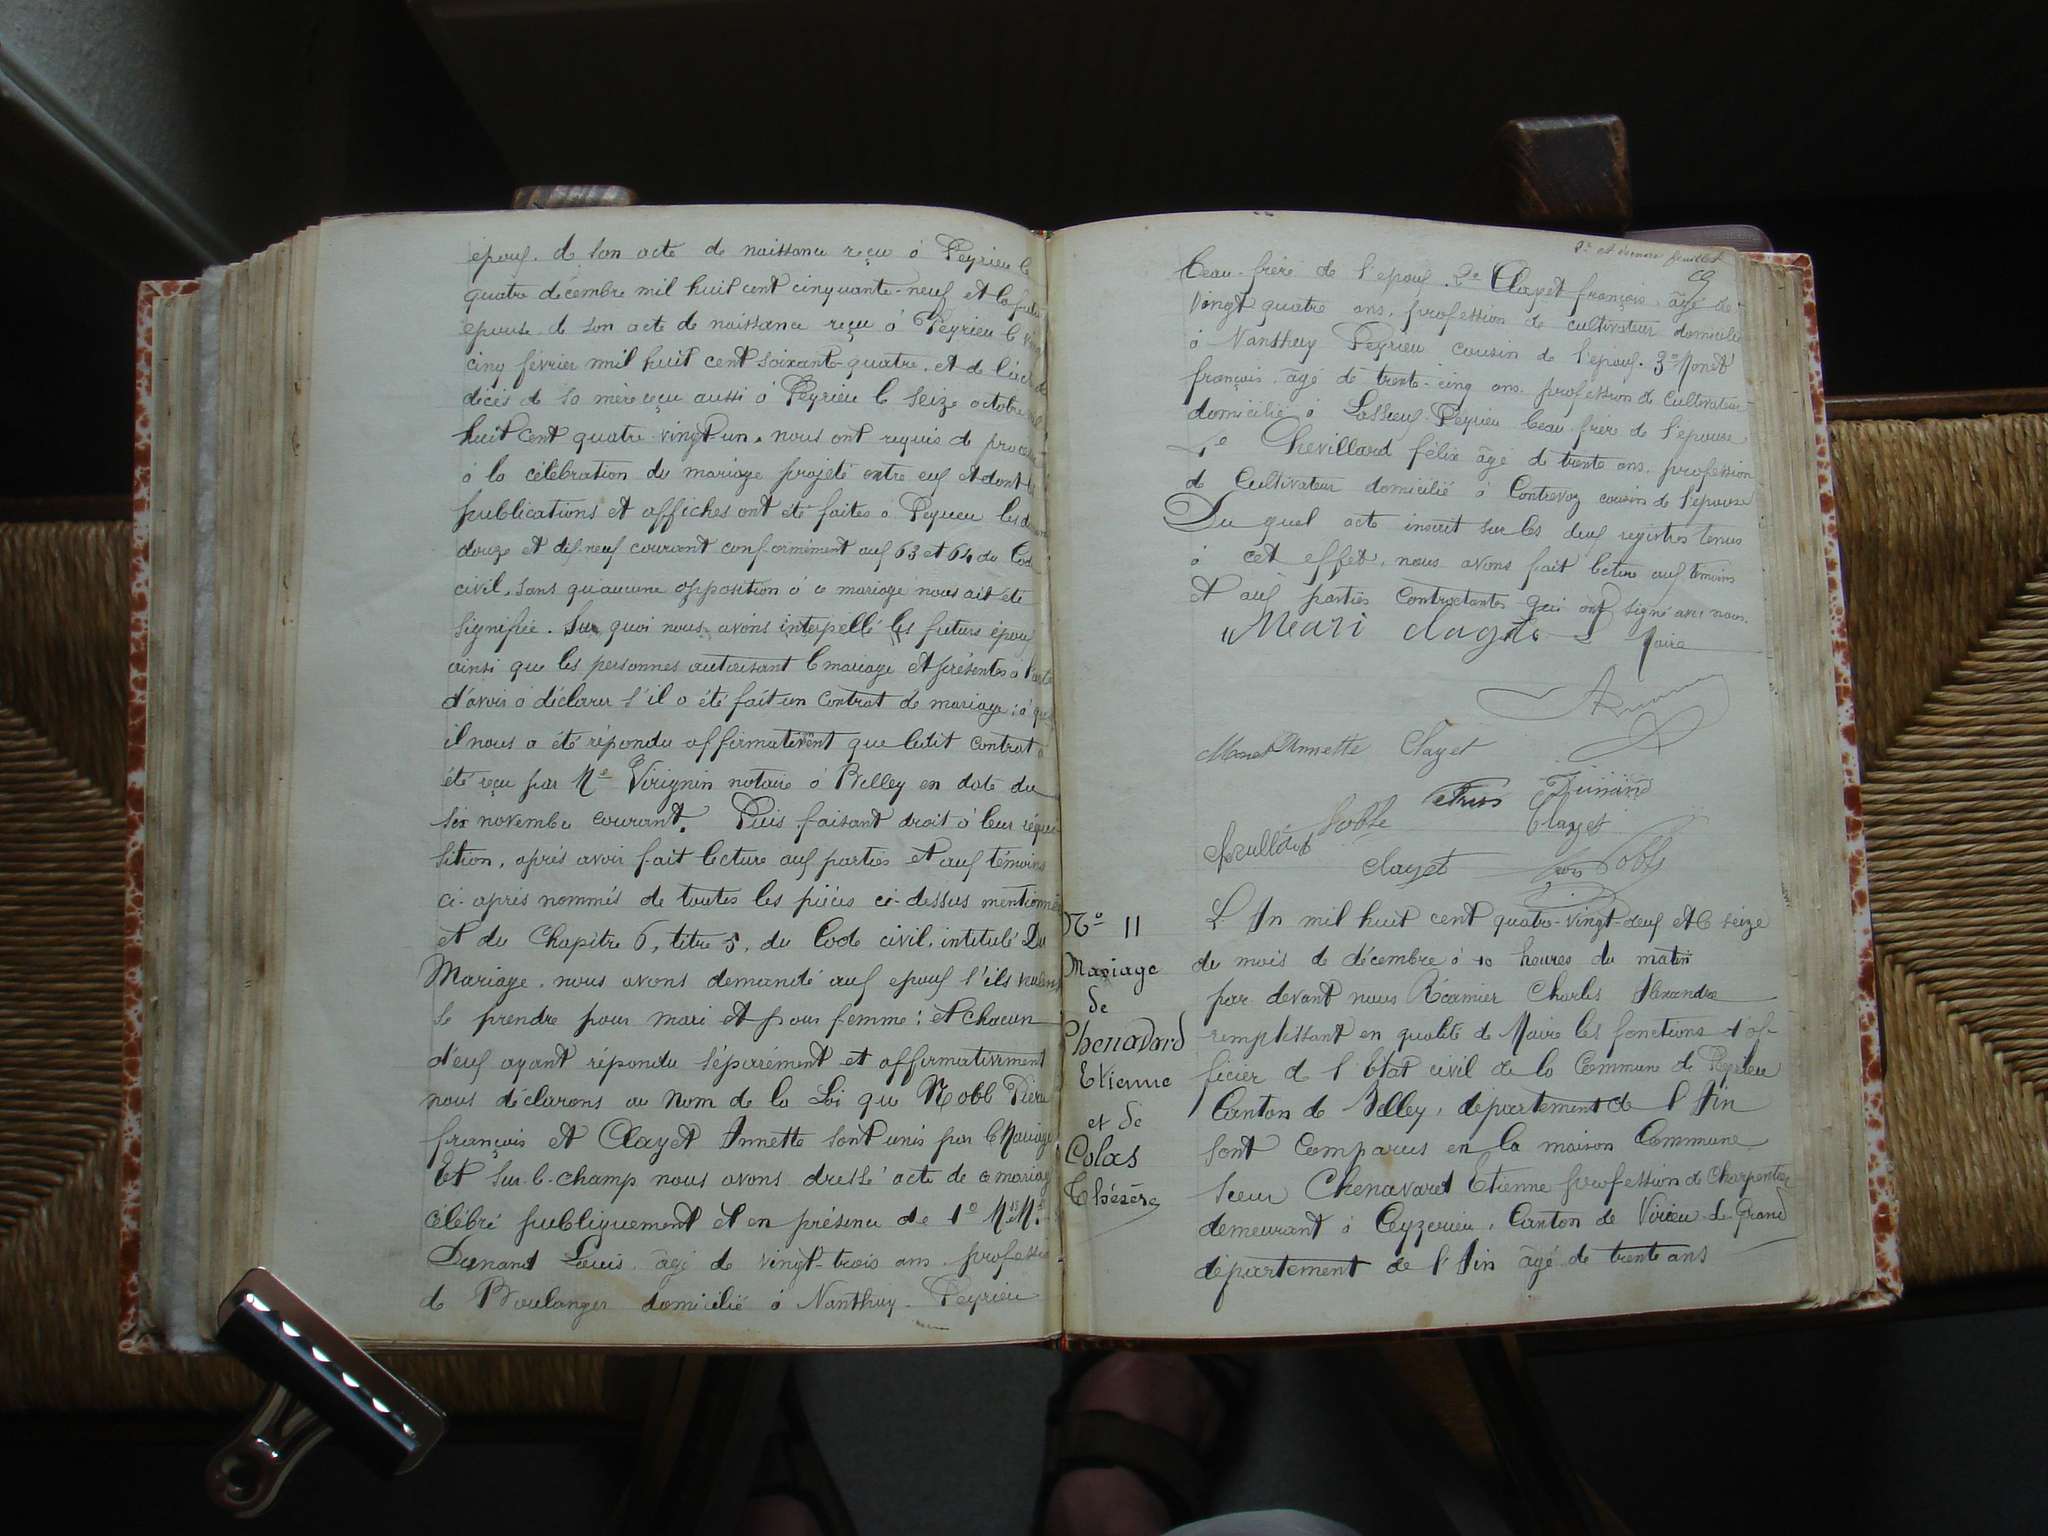 époux. de son acte de naissance reçu à Peyrieu le
quatre décembre mil huit cent cinquante-neuf et la future
épouse. de son acte de naissance reçu à Peyrieu le vingt
cinq février mil huit cent soixante-quatre. et de l'acte de
décès de sa mère reçu aussi à Peyrieu le seize octobre mil
huit cent quatre-vingt un. nous ont requis de procéder
à la célébration du mariage projeté entre eux et dont les
publications et affiches ont été faites à Peyrieu les
douze et dix-neuf courant conformément aux 63 et 64 du Code
civil. sans qu'aucune opposition à ce mariage nous ait été
signifiée. Sur quoi nous avons interpellé les futurs époux
ainsi que les personnes autorisant le mariage et présentes à l'acte
d'avoir à déclarer s'il a été fait un contrat de mariage: à quoi
il nous a été répondu affirmativent que ledit contrat a
été reçu par Me Virignin notaire à Belley en date du
six novembre courant. Puis faisant droit à leur réqui-
sition, après avoir fait lecture aux parties et aux témoins
ci-après nommés de toutes les pièces ci-dessus mentionnées
et du Chapitre 6, titre 5, du Code civil, intitulé Du
Mariage. nous avons demandé aux époux s'ils veulent
se prendre pour mari et pour femme: et chacun
d'eux ayant répondu séparément et affirmativement
nous déclarons au Nom de la Loi que Nobb Pierre
françois et Clayet Annette sont unis par le Mariage
Et sur-le-champ nous avons dressé acte de ce mariage
célébré publiquement et en présence de 1° MM.
Dunand Louis. âgé de vingt-trois ans profession
de Boulanger domicilié à Nanthuy-Peyrieu
beau-frère de l'époux. 2e Clayet françois. âgé de
vingt quatre ans. profession de cultivateur domicilié
à Nanthuy Peyrieu cousin de l'époux. 3° Monet
françois. âgé de trente-cinq ans. profession de cultivateur
domicilié à Lassieux-Peyrieu beau-frère de l'épouse
4e Chevillard félix âgé de trente ans. profession
de Cultivateur domicilié à Contrevoz cousin de l'épouse
Du quel acte inscrit sur les deux registres tenus
à cet effet, nous avons fait lecture aux témoins
et aux parties contractantes qui ont signé avec nous.
Maire
Annette Clayet
Dunand
Clayet
Clayet
No 11
Mariage
de
Chenavard
Etienne
et de
Colas
Thérèse
L'An mil huit cent quatre-vingt-deux et le seize
du mois de décembre à 10 heures du matin
par devant nous Récamier Charles Alexandre
remplissant en qualité de Maire les fonctions d'of-
ficier de l'Etat civil de la Commune de Peyrieu
Canton de Belley, département de l'Ain
sont comparus en la maison Commune
Sieur Chenavard Etienne profession de Charpentier
demeurant à Ceyzerieu, Canton de Virieu-Le-Grand
département de l'Ain âgé de trente ans